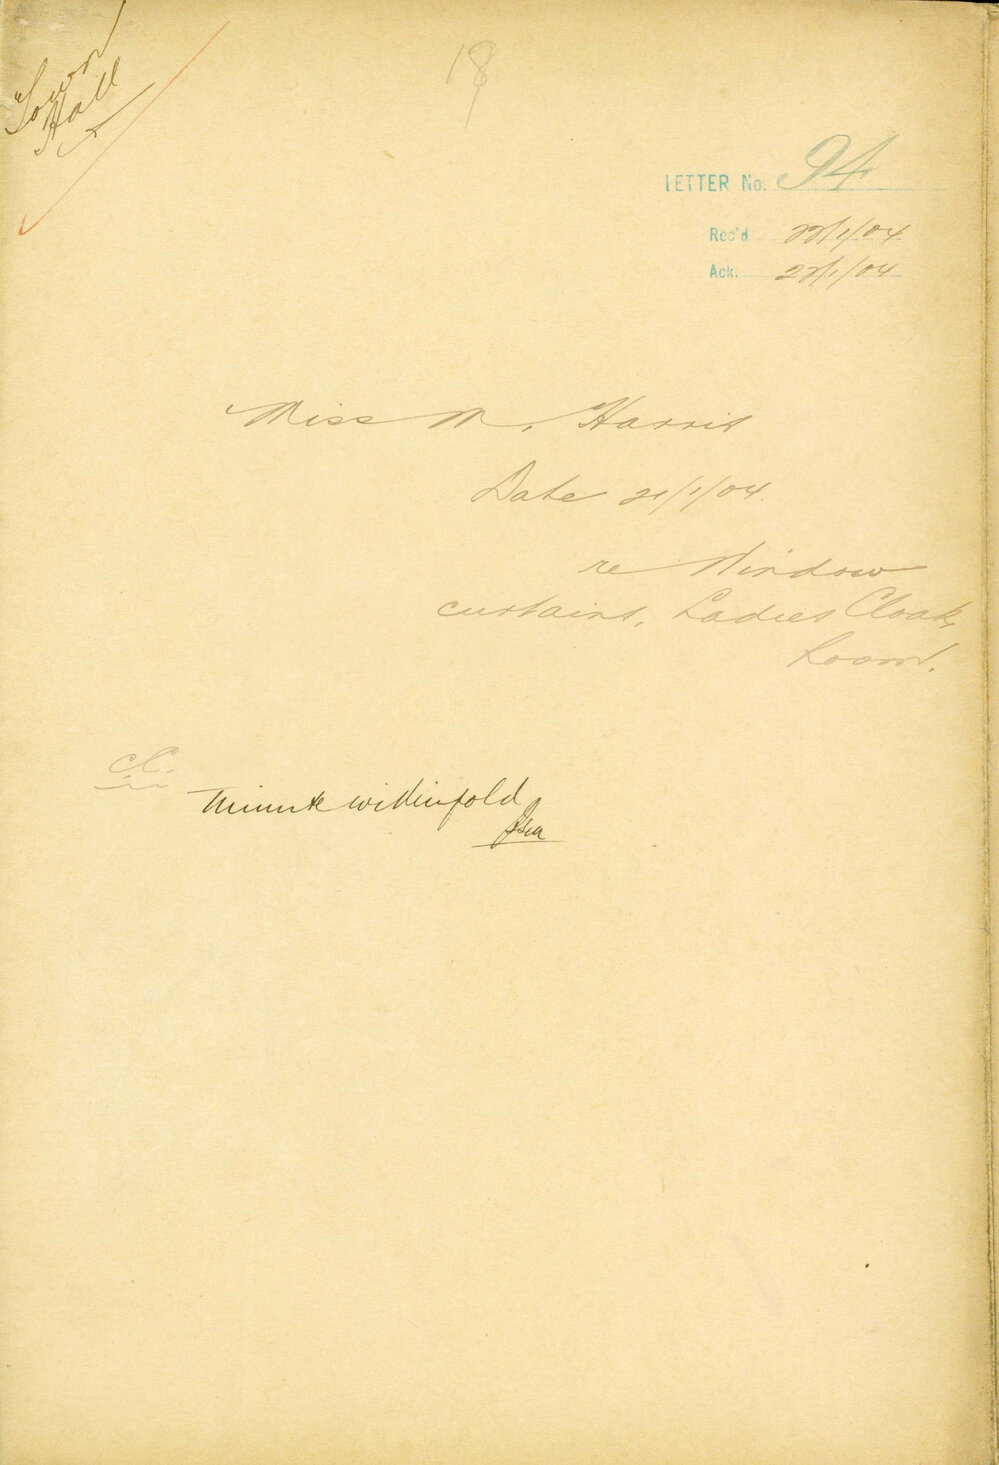 Town
Hall
18
LETTER No. 94
Rec'd 22/1/04
Ack. 22/1/04
Miss M. Harris
Date 21/1/04.
re Window
curtains, Ladies Cloak
Room.
Minute within fold